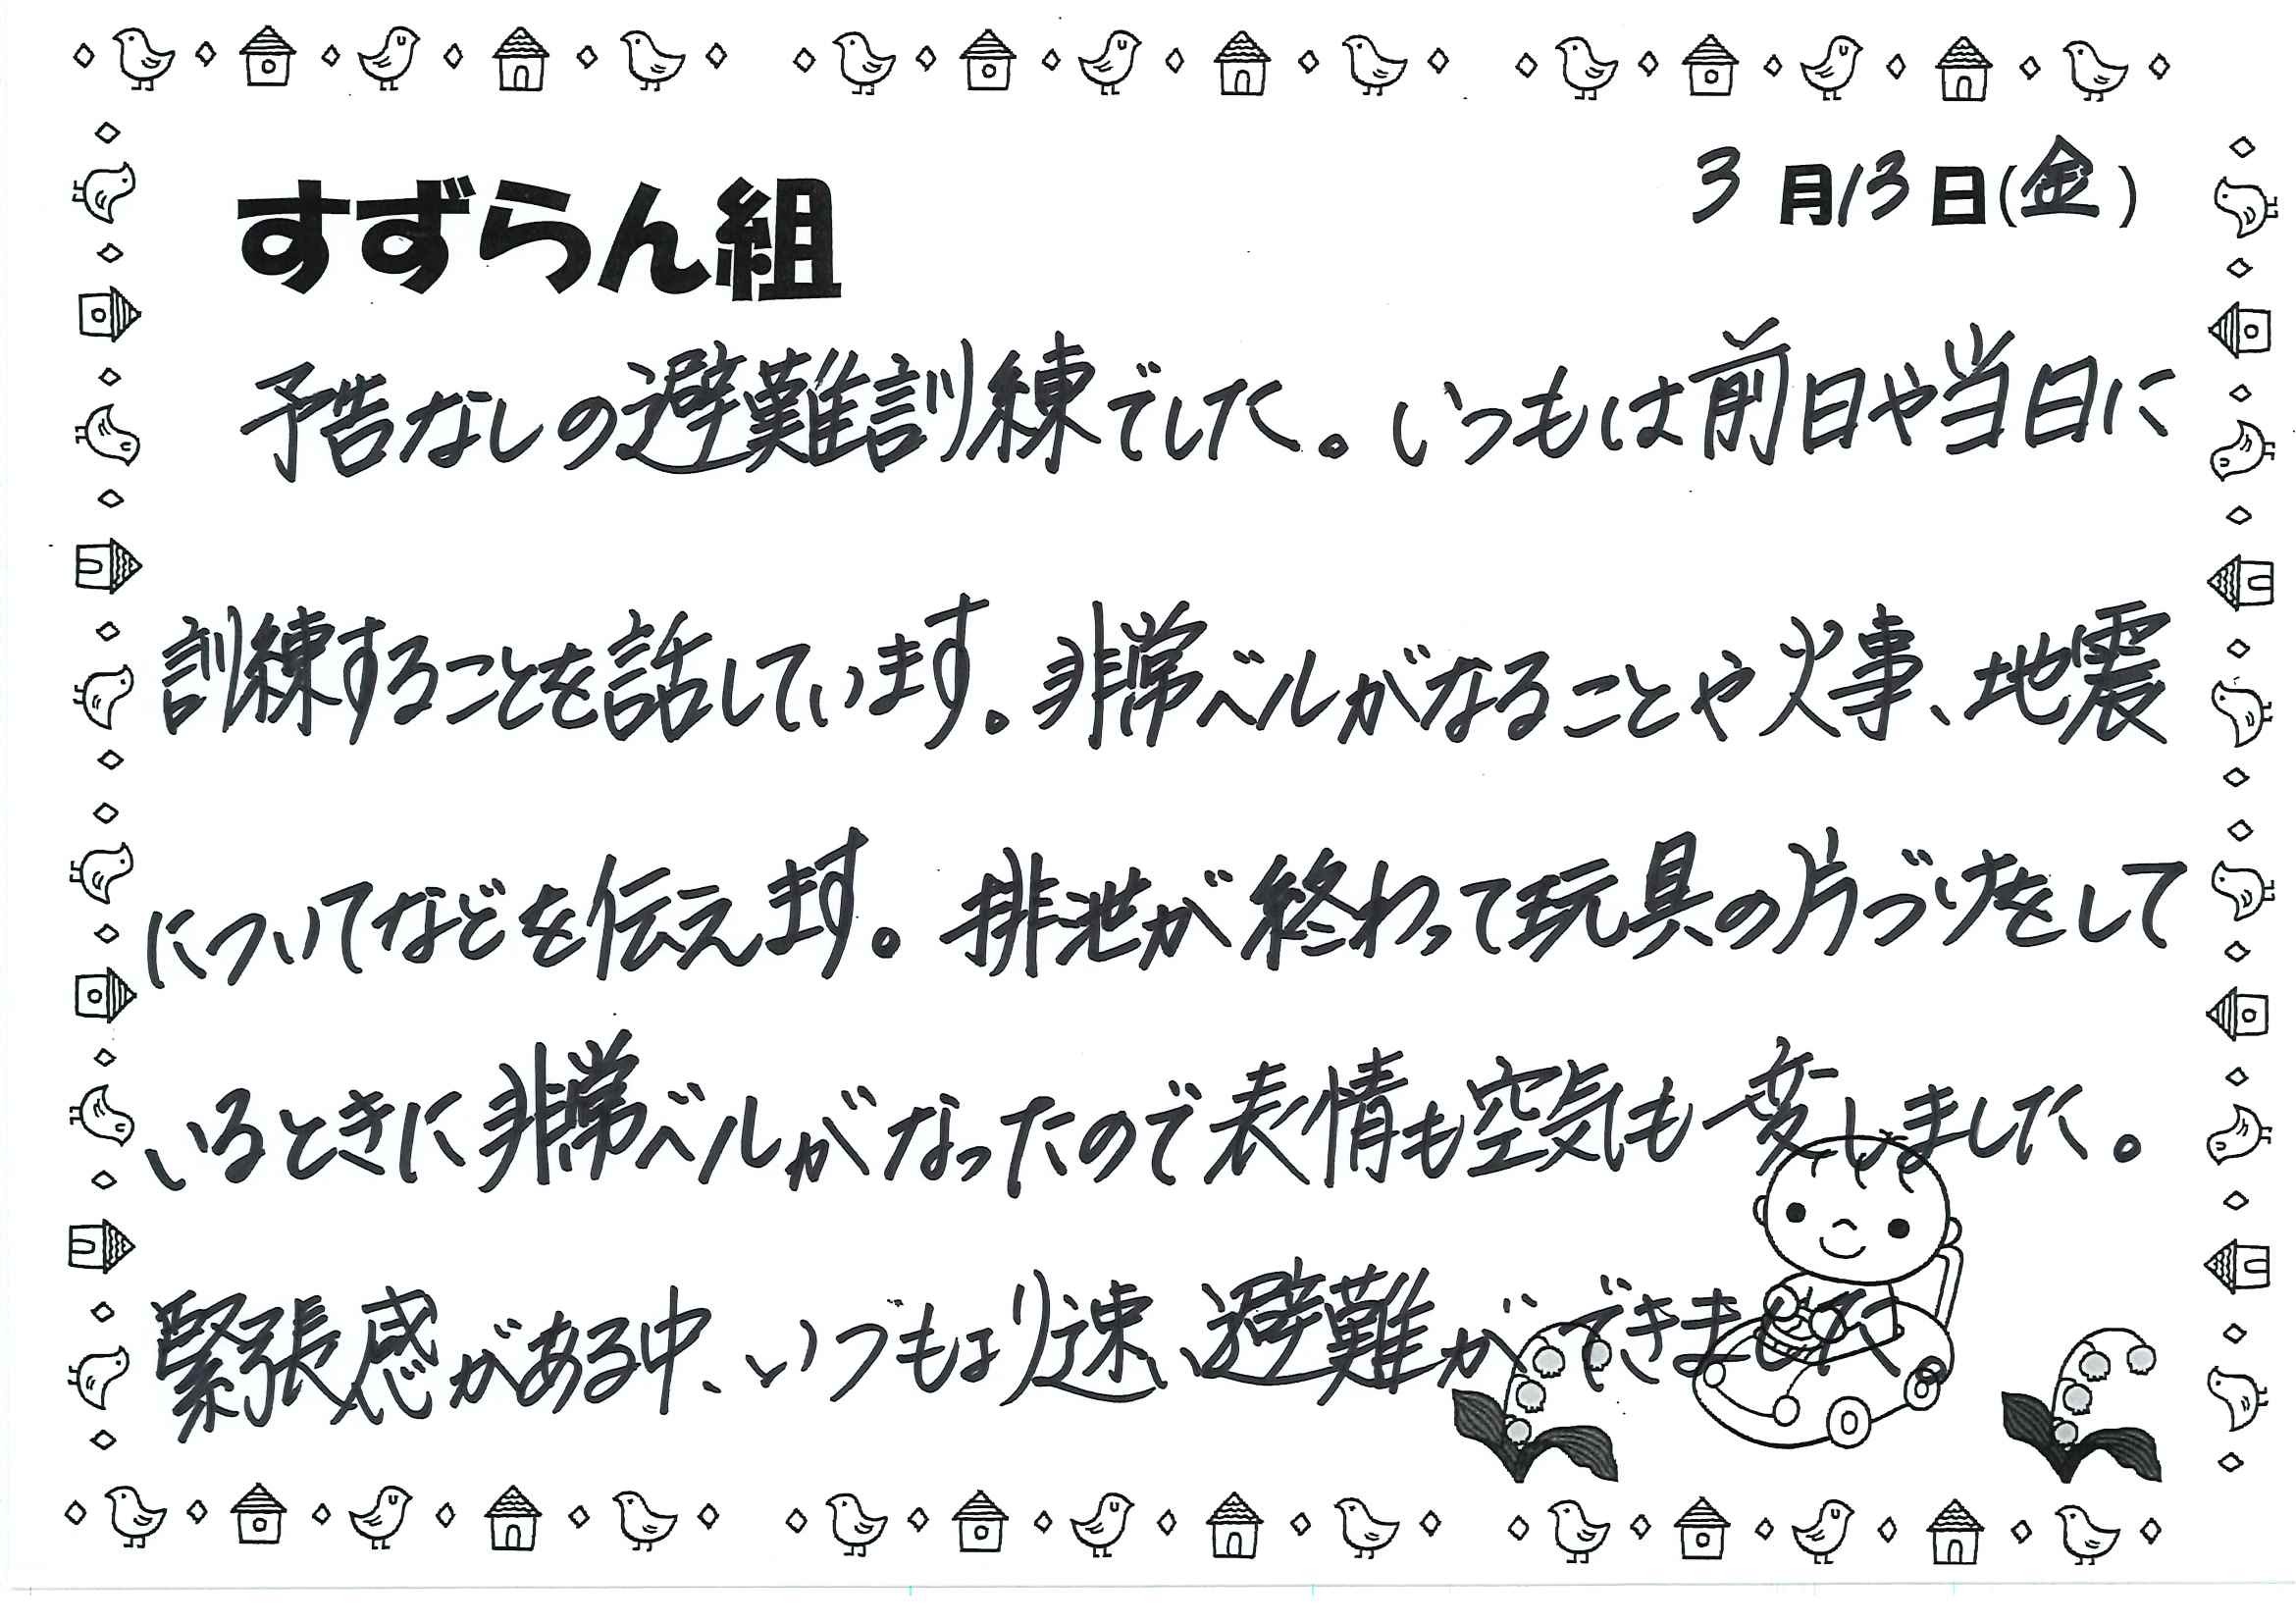 すずらん組
3月13日(金)
予告なしの避難訓練でした。いつもは前日や当日に
訓練することを話しています。非常ベルがなることや火事、地震
についてなどを伝えます。排泄が終わって玩具の片づけをして
いるときに非常ベルがなったので表情も空気も一変しました。
緊張感がある中、いつもより速い避難ができました。